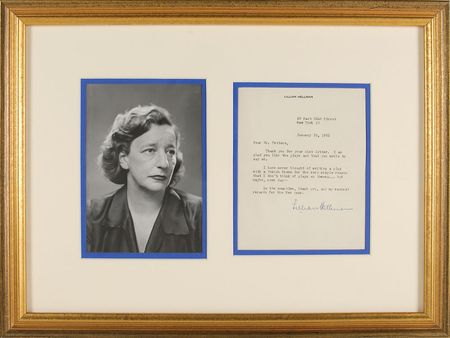 LILLIAN HELLMAN
63 East 82nd Street
New York 28
January 19, 1952
Dear Mr.
Thank you for your nice letter. I am
glad you like the plays and that you wrote to
say so.
I have never thought of writing a play
with a Jewish theme for the very simple reason
that I don't think of plays as themes... but
maybe, some day--
In the meantime, thank you, and my warmest
regards for the New Year.
Lillian Hellman